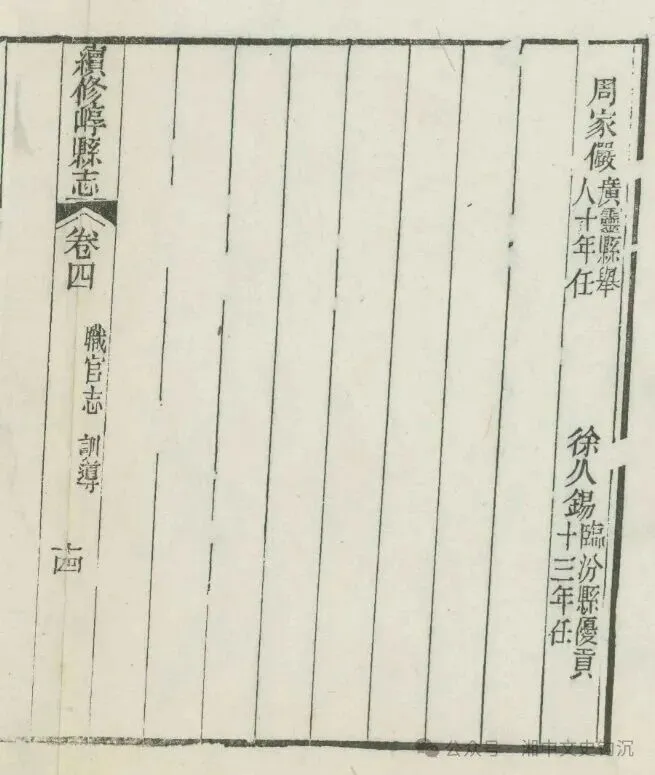 周家儼 廣靈縣舉
人十年任
徐久錫 臨汾縣優貢
十三年任
續修崞縣志 卷四 職官志 訓導 十四
公众号 · 湘中文史钩沉